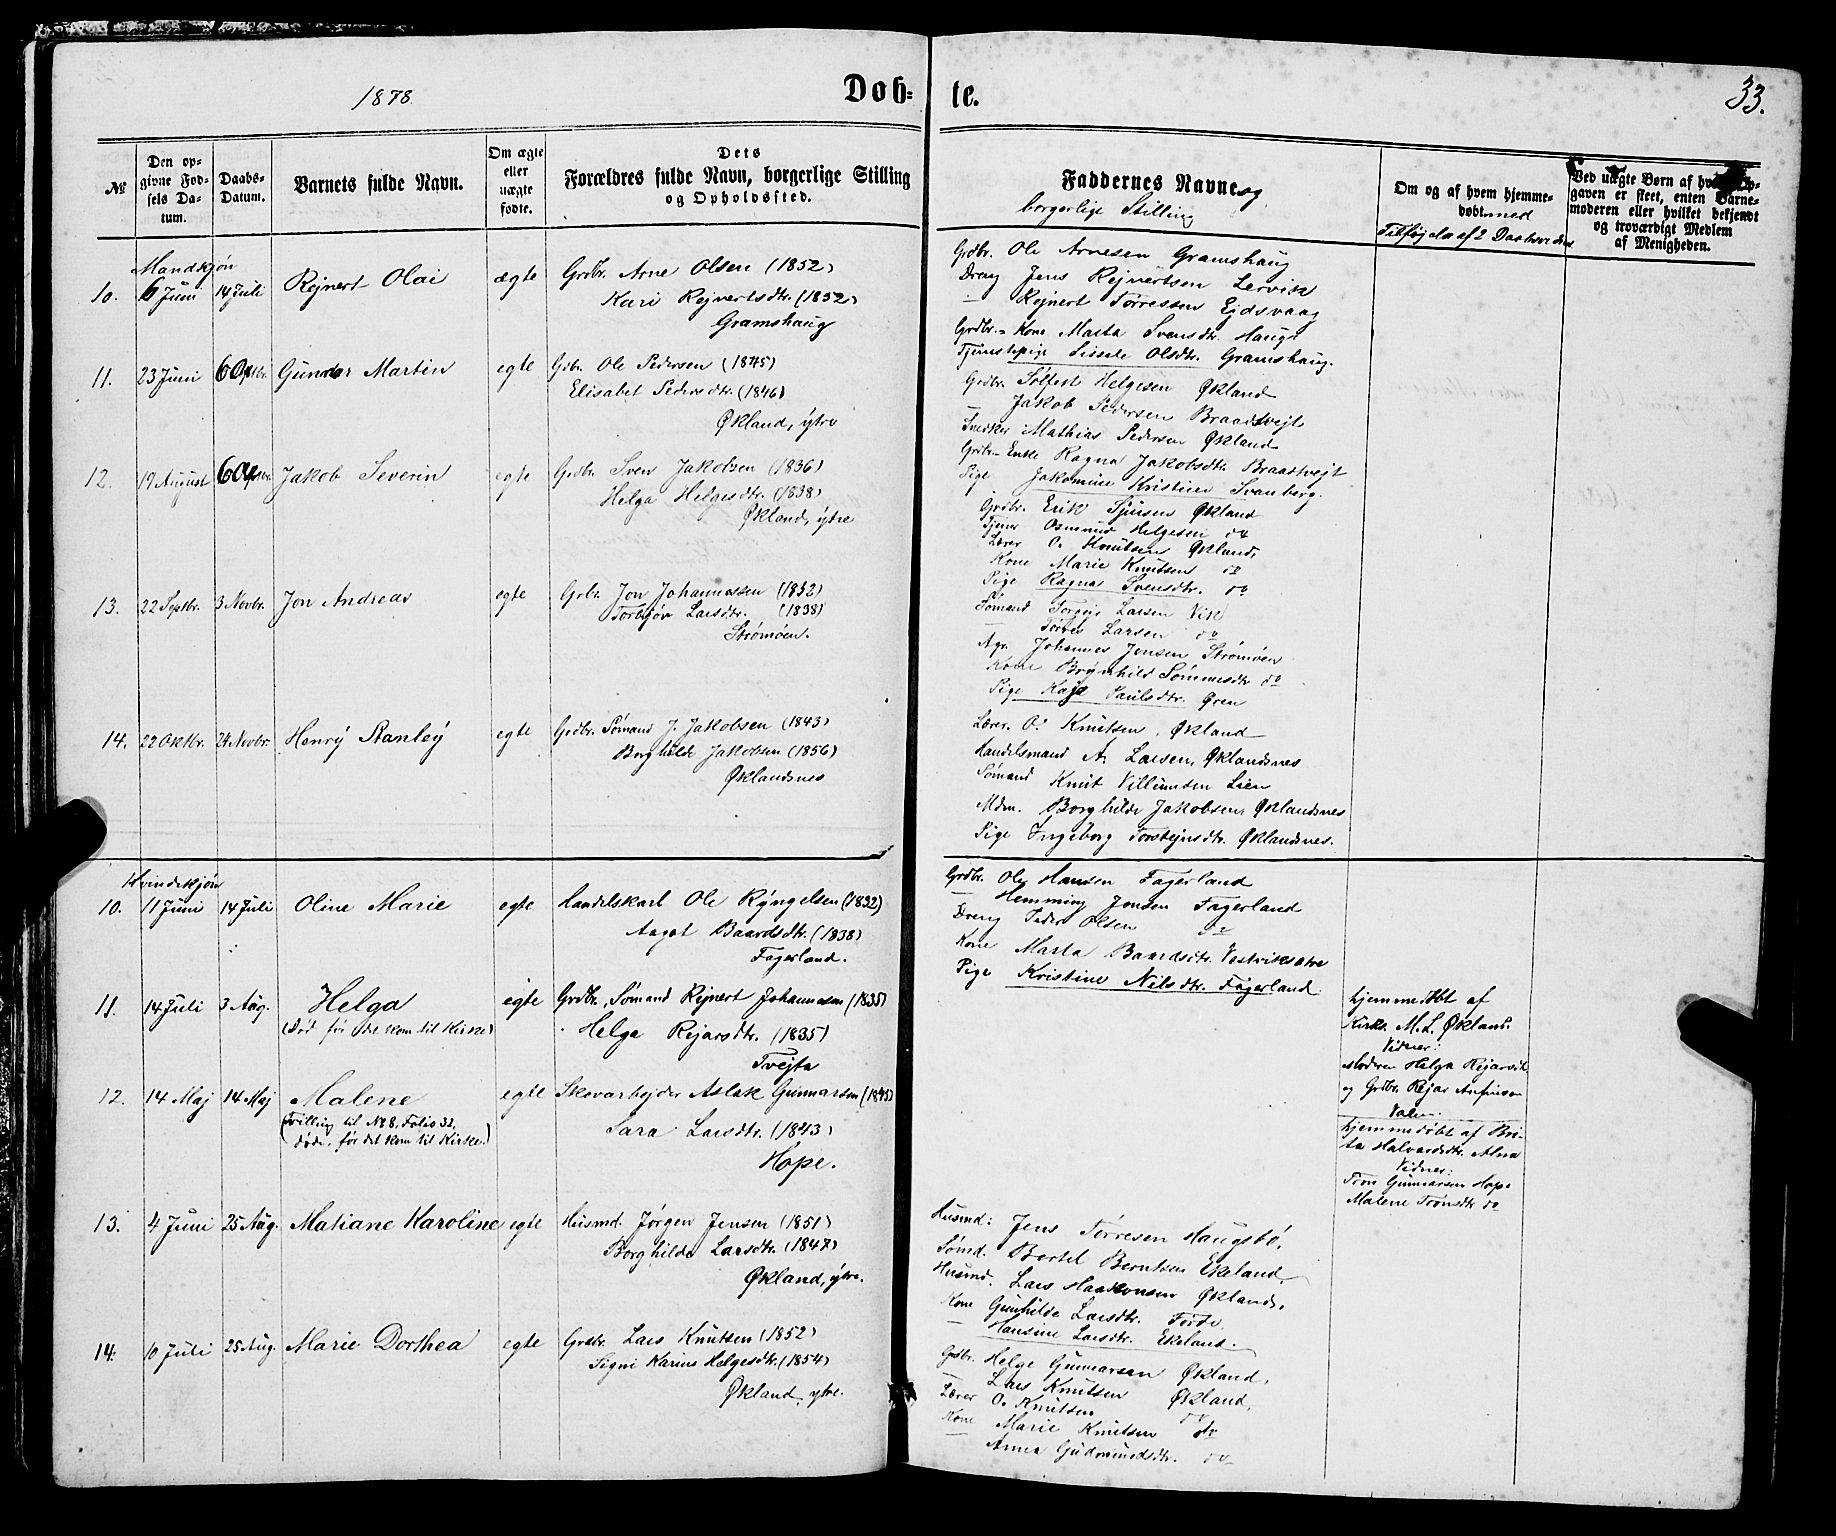 1878.
Döb-
te.
33.
№
Den opgivne Fødsels Datum.
Daabs-Datum.
Barnets fulde Navn.
Om ægte eller uægte fødte.
Dets
Forældres fulde Navn, borgerlige Stilling
og Opholdssted.
Faddernes Navne og
borgerlige Stilling
Om og af hvem hjemmedøbt med
Tilføjelse af 2 Daabsvidner
Ved uægte Børn af hvem Opgaven er skeet, enten Barnemoderen eller hvilket bekjendt og troværdigt Medlem af Menigheden.
Mandkjøn
10. 6 Juni 14 Juli Rejnert Olai ægte Grdbr. Arne Olsen (1852)
Kari Rejnertsdtr. (1852)
Gramshaug
Grdbr. Ole Arnesen Gramshaug
Dreng Jens Rejnertsen Lervik
— Rejnert Tørressen Ejdsvaag
Grdbr.- Kone Marta Svensdtr. Hauge
Tjenstepige Sissele Olsdtr. Gramshaug.
11. 23 Juni 6 Oktbr. Gunnar Martin egte Gdbr. Ole Pedersen (1845)
Elisabet Pedersdtr. (1846)
Økland, ytre
Grdbr. Solfest Helgesen Økland
— Jakob Pedersen Braadtvejt
Snedker Mathias Pedersen Økland
Grdbr- Enke Ragna Jakobsdtr. Braatvejt
Pige Jakomine Kristine Svanberg.
12. 19 August 6 Oktbr. Jakob Severin egte Grdbr. Sven Jakobsen (1836)
Helga Helgesdtr. (1838)
Økland, ytre
Grdbr. Erik Sjursen Økland
Tjener Osmund Helgesen do
Lærer O. Knutsen Økland,
Kone Marie Knutsen do
Pige Ragna Svensdtr. do
13. 22 Septbr. 3 Novbr. Jon Andreas egte Grbr. Jon Johannessen (1832)
Torbjør Larsdtr. (1838)
Strømøen.
Sømand Torgeir Larsen Vik
— Larsen do
Johannes Jensen Strømøen
Kone Brynhild Sømmesdtr do
Pige Kaja Paulsdtr. Øren
14. 22 Oktbr. 24 Novbr. Henry Stanley egte Grdbr. Sømand J. Jakobsen (1843)
Borghilde Jakobsen (1856)
Øklandsnes
Lærer. O. Knutsen, Økland
Handelsmand A. Larsen, Øklandsnes
Sømand Knut Villumsen Lien
Mdm. Borghilde Jakobsen, Øklandsnes
Pige Ingeborg Torstejnsdtr. Øklandsnes.
Kvindekjøn
10. 11 Juni 14 Juli Oline Marie egte Handelskarl Ole Ryngelsen (1832)
Aagot Baardsdtr. (1838)
Fagerland.
Grdbr. Ole Hansen Fagerland
— Hemming Jonsen Fagerland
Dreng Peder Olsen do
Kone Marta Baardsdtr. Vestviksætre
Pige Kristine Nilsdtr. Fagerland
11. 14 Juli 3 Aug. Helga egte Grdbr. Sømand Rejnert Johannesen (1835)
(Død før det kom til Kirke) Helga Rejarsdtr. (1835)
Tvejta
hjemmedøbt af
Kirks. M. L. Økland.
Vidner:
Moderen Helga Rejarsdt
og Grdbr. Rejar Anfinsen
Valen.
12. 14 Maj 14 Maj Malene egte Skovarbejder Aslak Gunnarsen (1845)
(Tvilling til No 8, Folio 32,
døde, før det kom til Kirke.)
Sara Larsdtr. (1843)
Hope.
hjemmedøbt af Bri-
ta Halvardsdtr. Alna
Vidner:
Tron Gunnarsen Hope
Malene Tronsdtr do
13. 4 Juni 25 Aug. Matiane Karoline egte Husmd. Jørgen Jensen (1851)
Borghilde Larsdtr. (1847)
Økland, ytre.
Husmd: Jens Tørresen Haugsbø.
Sømd. Bertel Berntsen Ekeland,
Husmd. Lars Haakonsen Økland,
Kone Gunhilde Larsdtr. Førde
— Hansine Larsdtr. Ekeland.
14. 10 Juli 25 Aug. Marie Dorthea egte Grdbr. Lars Knutsen (1852)
Signi Karine Helgesdtr. (1854)
Økland, ytre.
Grdbr. Helge Gunnarsen Økland,
— Lars Knutsen Økland,
Lærer O. Knutsen do
Kone Marie Knutsen do
— Anna Gudmundsdtr. do